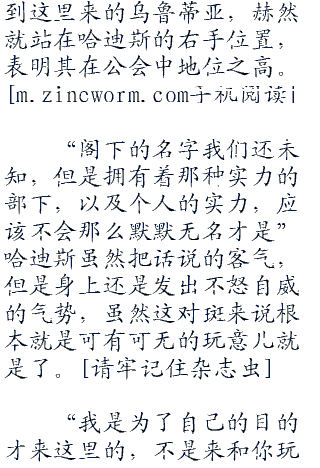 到这里来的乌鲁蒂亚，赫然
就站在哈迪斯的右手位置，
表明其在公会中地位之高。
[m.zincworm.com手机阅读]
“阁下的名字我们还未
知，但是拥有着那种实力的
部下，以及个人的实力，应
该不会那么默默无名才是”
哈迪斯虽然把话说的客气，
但是身上还是发出不怒自威
的气势，虽然这对斑来说根
本就是可有可无的玩意儿就
是了。[请牢记住杂志虫]
“我是为了自己的目的
才来这里的，不是来和你玩